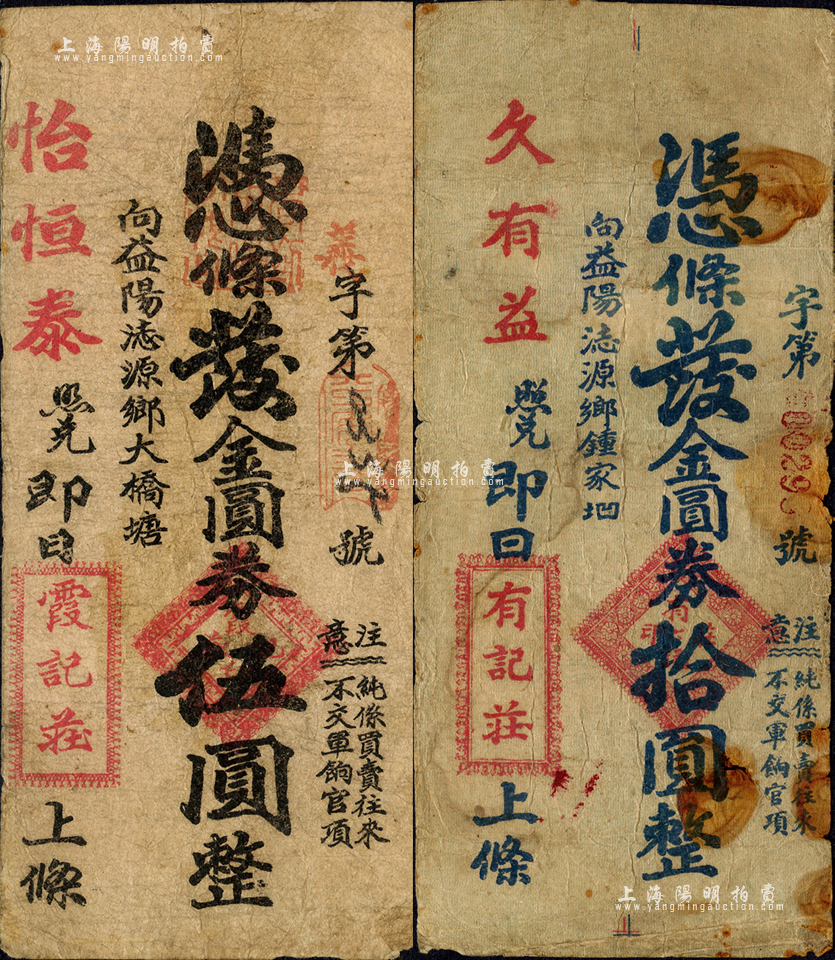 上海陽明拍賣
www.yangmingauction.com
義字第
號
注意 純係買賣往來
不交軍餉官項
憑條發金圓券伍圓整
向益陽誌源鄉大橋塘
怡恒泰 照兌 即日
霞記莊
上條
字第 0029 號
注意 純係買賣往來
不交軍餉官項
憑條發金圓券拾圓整
向益陽誌源鄉鍾家凹
久有益 照兌 即日
有記莊
上條
上海陽明拍賣
www.yangmingauction.com
上海陽明拍賣
www.yangmingauction.com